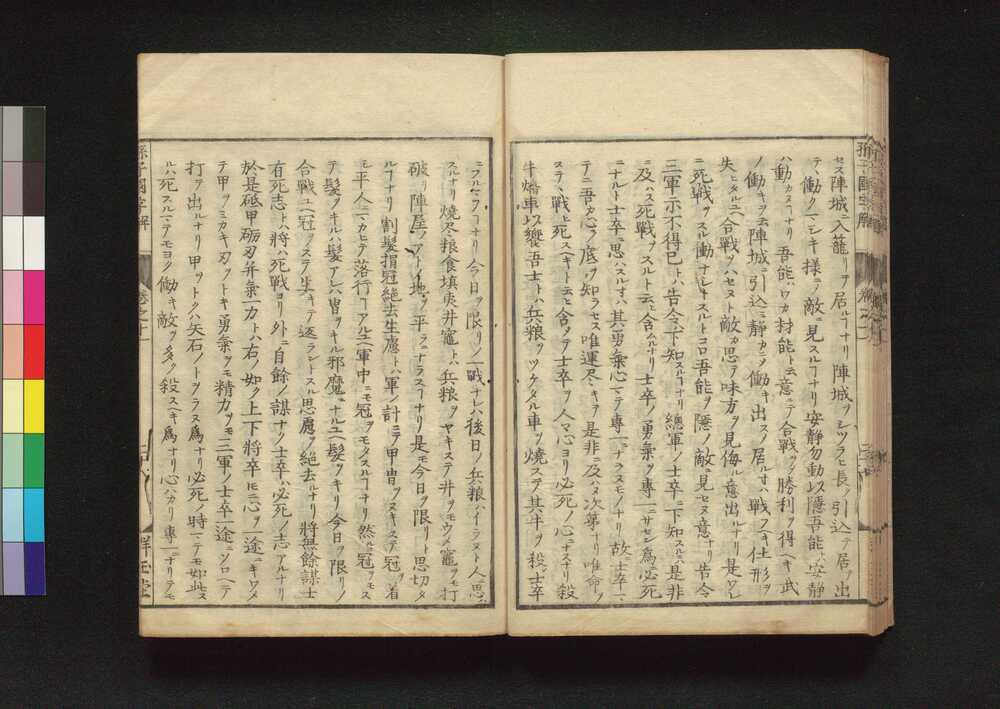 セス陣城ニ入籠リヲ居ルヿナリ陣城ヲシツラヒ長ノ引込テ居ヲ出
テヽ働クマシキ様ニヲ敵ニ見スルヿナリ安静勿動以隠吾能トハ安静
ハ動カヌヿナリ吾能ハワカ材能ト云意ニテ合戦ヲメ勝利ヲ得ヘキ武
ノ働キヲ云陣城ニ引込ミ静カニメ働キ出スメ居ルオハ戦フヘキ仕形ヲ
失ヒタルユヘ合戦ヲハセヌト敵カ思テ味方ヲ見侮ル意出ルナリ是ワレ
ニ死戦ヲスル働ナレキスルトコロ吾能ヲ隠メ敵ニ見セヌ意ナリ告令
三軍示不得已トハ告令ハ下知スルヿナリ總軍ノ士卒ニ下知スルニハ是非
ニ及ハス死戦ヲスルト云ヒ含ムルナリ士卒ノ勇氣ヲ專一ニサセン為必死
ニナルト士卒ニ思ハスルオハ其勇氣心ニテ專一ニナラヌモノナリ故ニ士卒ニハ
テニ吾カ心ヲ底ヲ知ラセス唯運尽キテ是非ニ及ハヌ次第ナリ唯命ヲ
ステヽ戦ヒ死スヘキト云ヒ含ヲテ士卒ヲ人々心ヨリ必死ノ心ニナスナリ殺
牛燔車以饗吾士トハ兵粮ヲツケタル車ヲ燒ステ其牛ヲ殺シ士卒
ニフルマフヿナリ今日ヲ限リノ戦ナレハ後日ノ兵粮ハイラヌト人ニ思ハ
スルナリ燒尽粮食填夷井竈トハ兵粮ヲヤキステ井ヲモウヅメ竈ヲモ打
破リ陣屋ノアイ地ヲ平ラニナラスヿナリ是モ今日ヲ限リト思切タ
ルヿナリ割髪捐冠絶去生慮トハ軍ノ計ニテ甲冑ヲヌキステ冠ヲ着
モ平人ニマカヒテ落行ヿアルユヘ軍中ニモ冠ヲモタスルヿナリ然ルニ冠ヲモス
テ髪ヲキルハ髪アレハ冑ヲキル邪魔ニナルユヘ髪ヲキリ今日ヲ限リノ
合戦ユヘ冠ヲステ生キテ返ラントスル思慮ヲ絶去ルナリ將無餘謀士
有死志トハ將ハ死戦ヨリ外ニ自餘ノ謀ナク士卒ハ必死ノ志アルナリ
於是砥甲砺刃并氣一力トハ右ノ如ク上下將卒𪜈ニ心ヲ一途ニキワメ
テ甲ヲミカキ刃ヲトキ勇氣ヲモ精力ヲモ三軍ノ士卒一途ニソロヘテ
打ヲ出ルナリ甲ヲトクハ矢石ノトヲラヌ為ナリ必死ノ時ニテモ如此ス
ルハ死スルニテモヨク働キ敵ヲ多ク殺スヘキ為ナリ心ハカリ專一ニナリテモ
孫子國字解
卷之十一
群玉堂